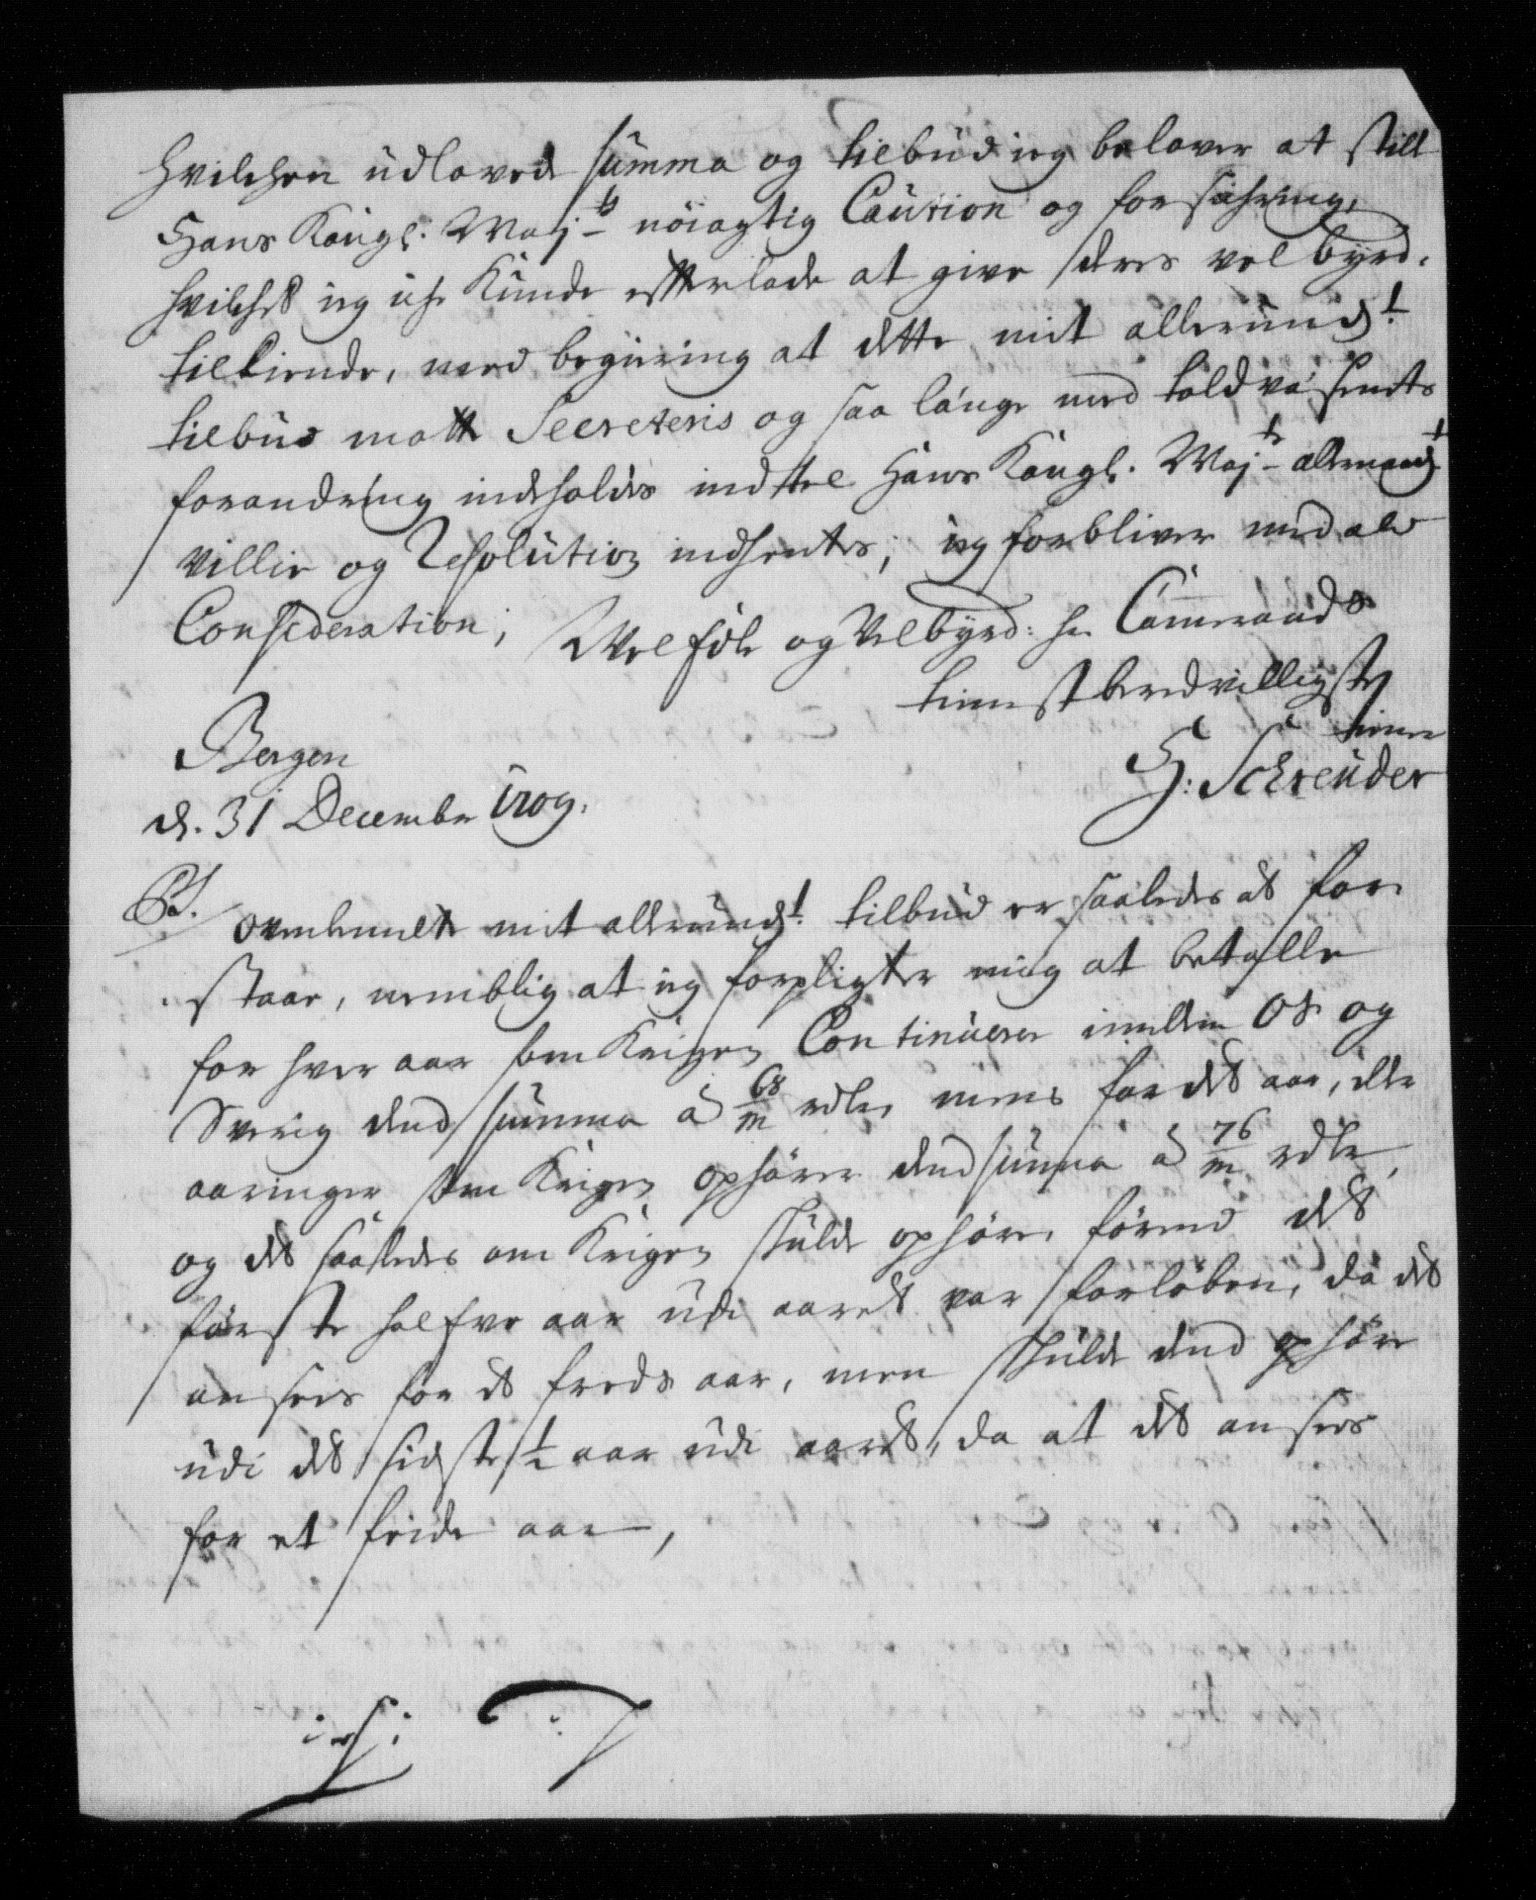 hvilchen udlovede summa og tilbud ieg belover at still
Hans Kongl. Maj:ts nöiagtig Caution og forsichring,
hvilchet ieg iche Kunde efterlade at give deres velbyrd.
tilkiende, med begiering at dette mit allerund:t
tilbud motte Secreteris og saa länge med toldväsenets
forandring indeholdes indtil Hans Kongl. Maj:ts allernaad:t
Villie og Resolution indhentes; ieg forbliver med ald
Consideration,
Wel Edle og Velbyrd: hr. Cammerraads
tienstberedvilligste
tiener
H: Schreuder
Bergen
d. 31 December 1709.
PS. ovenbemelte mit allerund:t tilbud er saaledes at for
staae, nemblig at ieg forpligter mig at betalle
for hver aar som Krigen Continuerer imellem os og
Sverig dend summa a 68/m rdlr, mens for det aar, eller
aaringer som Krigen ophörer dend summa a 76/m rdlr,
og det saaledes om Krigen skulde ophöre förend det
förste halfve aar udi aaret var forlöben, da det
ansees for et freds aar, men skulde dend ophöre
udi det sidste 1/2 aar udi aaret, da at det ansees
for et feide aar,